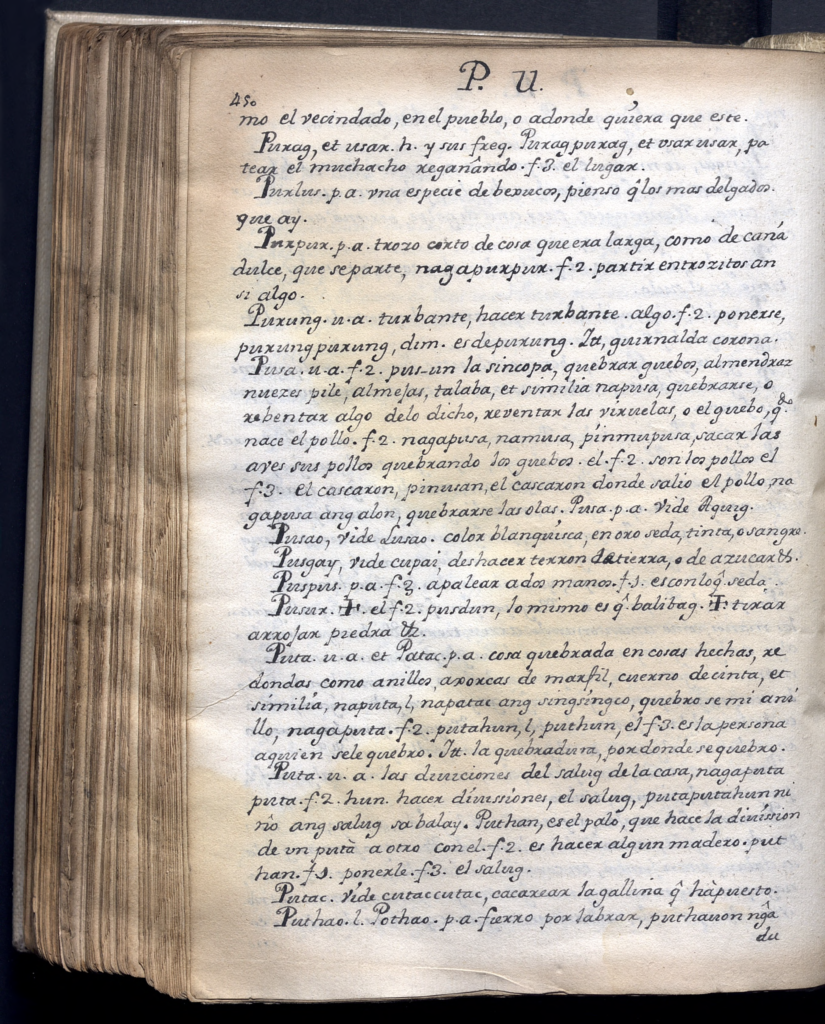 P. U.
450
mo el vecindado, en el pueblo, o adonde quiera que este.
Purag, et usar. h. y sus freq. Puragpurag, et usarusar, pa
tear el muchacho regañando. f. 3. el lugar.
Purlus. p. a. vna especie de bexucos, pienso q̃ los mas delgados
que ay.
Purpur. p. a. trozo corto de cosa que era larga, como de caña
dulce, que separte, nagapurpur. f. 2. partir entrozitos an
si algo.
Purung. u. a. turbante, hacer turbante. algo. f. 2. ponerse,
purungpurung, dim. es depurung. It, guirnalda corona.
Pusa. u. a. f. 2. pus-un la sincopa, quebrar guebos, almendraz
nuezes pile, almejas, talaba, et similia napusa, quebrarse, o
rebentar algo delo dicho, reventar las viruelas, o el guebo, q.do
nace el pollo. f. 2. nagapusa, namusa, pinmupusa, sacar las
aves sus pollos quebrando los guebos. el. f. 2. son los pollos el
f. 3. el cascaron, pinusan, el cascaron donde salio el pollo, na
gapusa ang alon, quebrarse las olas. Pusa. p. a. vide Aguing.
Pusao, vide Lusao. color blanquisca, en oro seda, tinta, o sangre.
Pusgay, vide cupai, deshacer terron detierra, o de azucar &.
Puspus. p. a. f. 2. apalear ados manos. f. 1. es conloq̃ seda
Pusur. ✝. el f. 2. pusdun, lo mismo es q̃ balibag. ✝ tirar
arrojar piedra &.
Puta. u. a. et Patac. p. a. cosa quebrada en cosas hechas, re
dondas como anillos, axorcas de marfil, cuerno de cinta, et
similia, naputa, l, napatac ang singsingco, quebrose mi ani
llo, nagaputa. f. 2. putahun, l, puthun, el f. 3. es la persona
aquien sele quebro. It. la quebradura, por donde se quebro.
Puta. u. a. las diuiciones del salug de la casa, nagaputa
puta. f. 2. hun. hacer diuissiones, el salug, putaputahun ni
nio ang salug sa balay. Puthan, es el palo, que hace la diuission
de vn putà a otro con el. f. 2. es hacer algun madero. put
han. f. 1. ponerle. f. 3. el salug.
Putac. vide cutaccutac, cacarear lagallina q̃ hapuesto.
Puthao. l. Pothao. p. a. fierro por labrar, puthauon nga
du